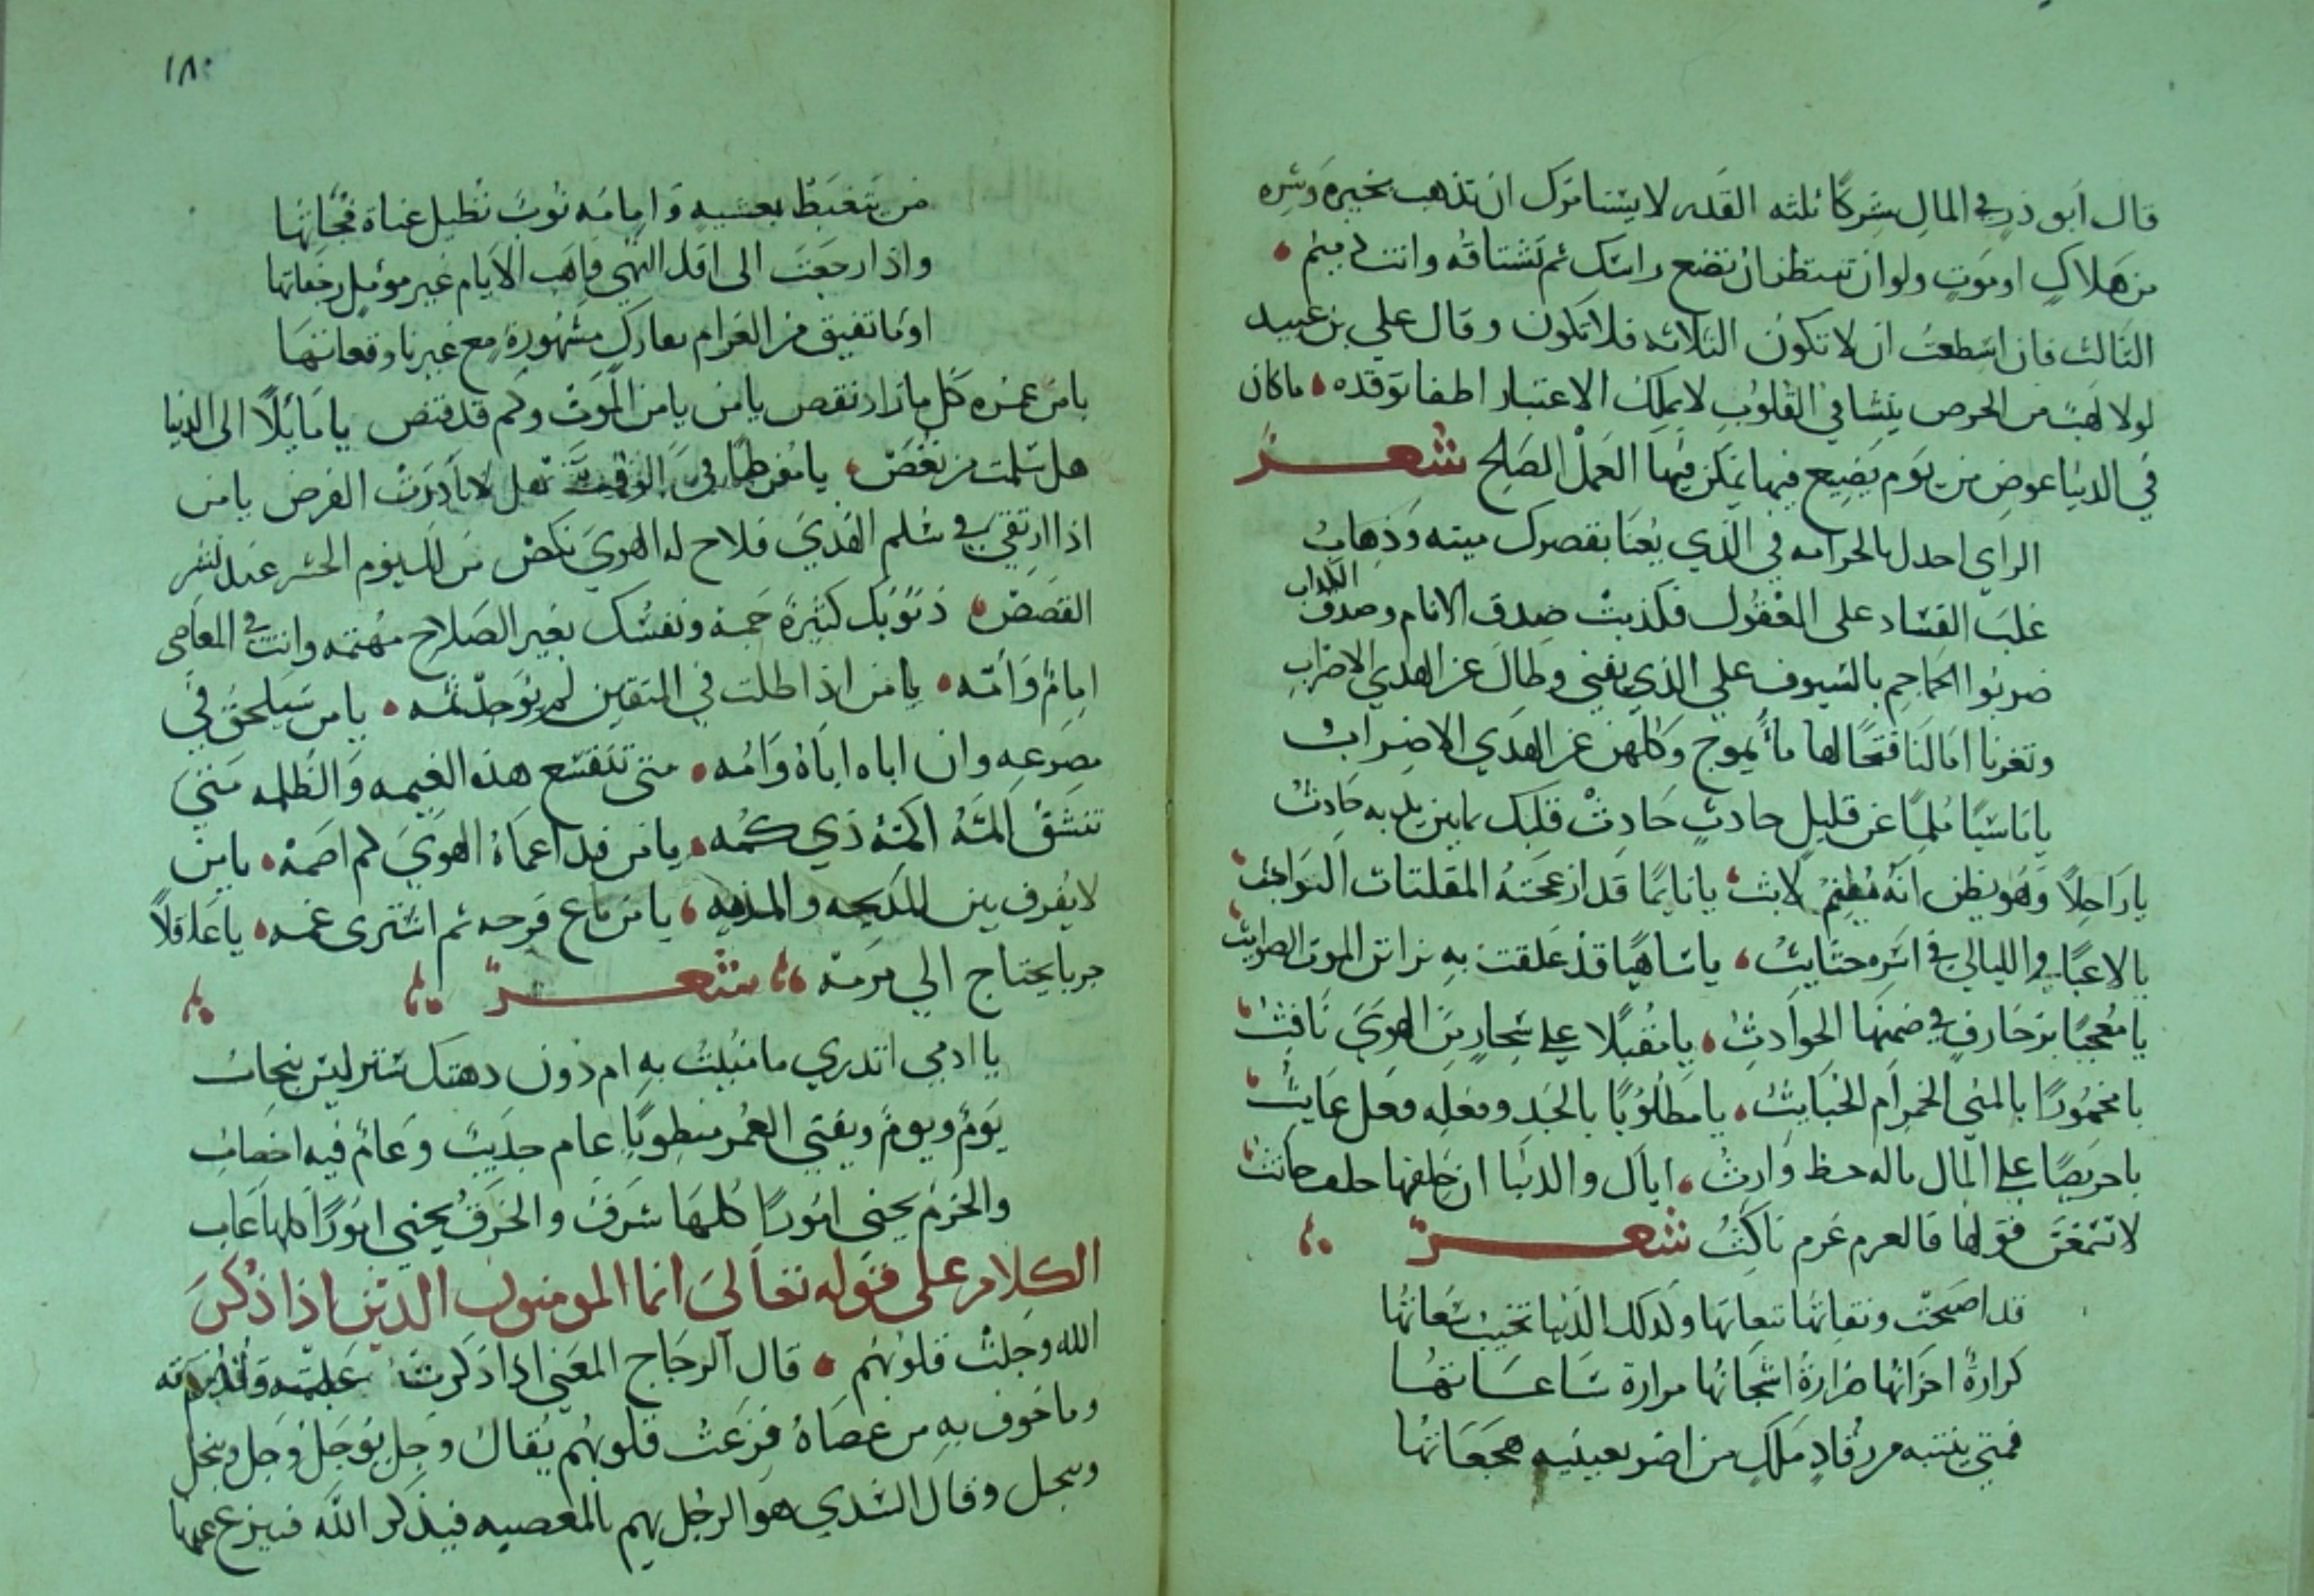 قال أبو ذر في المال شركا ثلثه القدر لا يستامرك ان تذهب بخيره وشره
من هلاك او موت ولوان تنتظر ان تضع راسك ثم تشتاقه وانت ذميم
الثالث فان اسطعت ان لا تكون الثلاثه فلا تكون وقال علي بن عبيد
لولا لهب من الحرص ينشا في القلوب لا يملك الاعتبار اطفا توقده ما كان
في الدنيا عوض من يوم يضيع فيها يمكن فيها العمل الصلح شعر
الراي احدل بالحرامه في الذي يعنا بقصرك ميته وذهاب
غلب الفساد على العقول فكذبت صدق الانام وصدق الكذاب
ضربوا الجماجم بالسيوف على الذي يفنى وطال عن الهدي الاضراب
وتغرنا امالنا فتحالها ماء يموج وكلهن عن الهدي الاضراب
يا ناسيا ملهيا عن قليل حادث حادث قلبك بما بين يديه حادث
يا راحلا وهو يظن انه مقيم لابث يا نايما قد ازعجته المقلتات البواعث
يا لاعبا و الليالي في اثره حثايث يا ساهيا قد علقت به براثن الموت الضوابث
يا معجبا بزخارف في ضمنها الحوادث يا مقبلا على سحار من الهوى نافث
يا مخمورا بالمنى الخمر ام الخبايث يا مطلوبا بالجد وفعله فعل عايث
يا حريصا على المال ماله حظ وارث اياك والدنيا ان حلفها حلف حانث
لا تسمعن قولها فالعزم عزم ناكث شعر
قد اصبحت ونقاتها تبعاتها ولذلك الدنيا تخيب سعاتها
كرارة احزانها ضرارة اشجانها مرارة ساعاتها
فمتى ينتبه من رقاد مهلك من اضر بعينيه هجعاتها
١٨٠
من يتغبط بعشيه وامامه نوب تطيل عناة فجأتها
واذا رجعت الى اقل النهى فاهب الايام غير مؤمل رجعاتها
اوما تفيق من الغرام بعارك مشهورة مع غيرنا وقعاتها
يا من عمره كل ما زاد نقص يا من يامن الموت وكم قد قنص يا مايلا الى الدنيا
هل سلمت من نغص يا مفرطا في الوقت هل لا بادرت الفرص يا من
اذا ارتقى في سلم الهدى فلاح له الهوى نكص من لك يوم الحشر عند نشر
القصص ذنوبك كثيرة جمه ونفسك بغير الصلاح مهتمه وانت في المعاصي
امام وامه يا من اذا طلب في المتقين لم يوجد ثمه يا من سيلحق في
مصرعه وان اباه اباه وامه متى تنقشع هذه الغيمه والظلمه متى
تنشق اكمه اكمه ذي كمه يا من قد اعماه الهوى ثم اصمه يا من
لا يفرق بين المديحه والمذمه يا من باع فرحه ثم اشترى غمه يا عاقلا
خربا يحتاج الى مرمه شعر
يا ادمي اتدري ما منيت به ام دون ذهنك ستر ليس ينجاب
يوم ويوم ويفنى العمر منطويا عام جديب وعام فيه اخصاب
والحزم يجني امورا كلها شرف والخرق يجني امورا كلها عاب
الكلام على قوله تعالى انما المومنون الذين اذا ذكر
الله وجلت قلوبهم قال الزجاج المعنى اذا ذكرت عظمته وقدرته
وما خوف به من عصاه فزعت قلوبهم يقال وجل يوجل وجل وييجل
وييجل وقال السدي هو الرجل يهم بالمعصيه فيذكر الله فينزع عنها